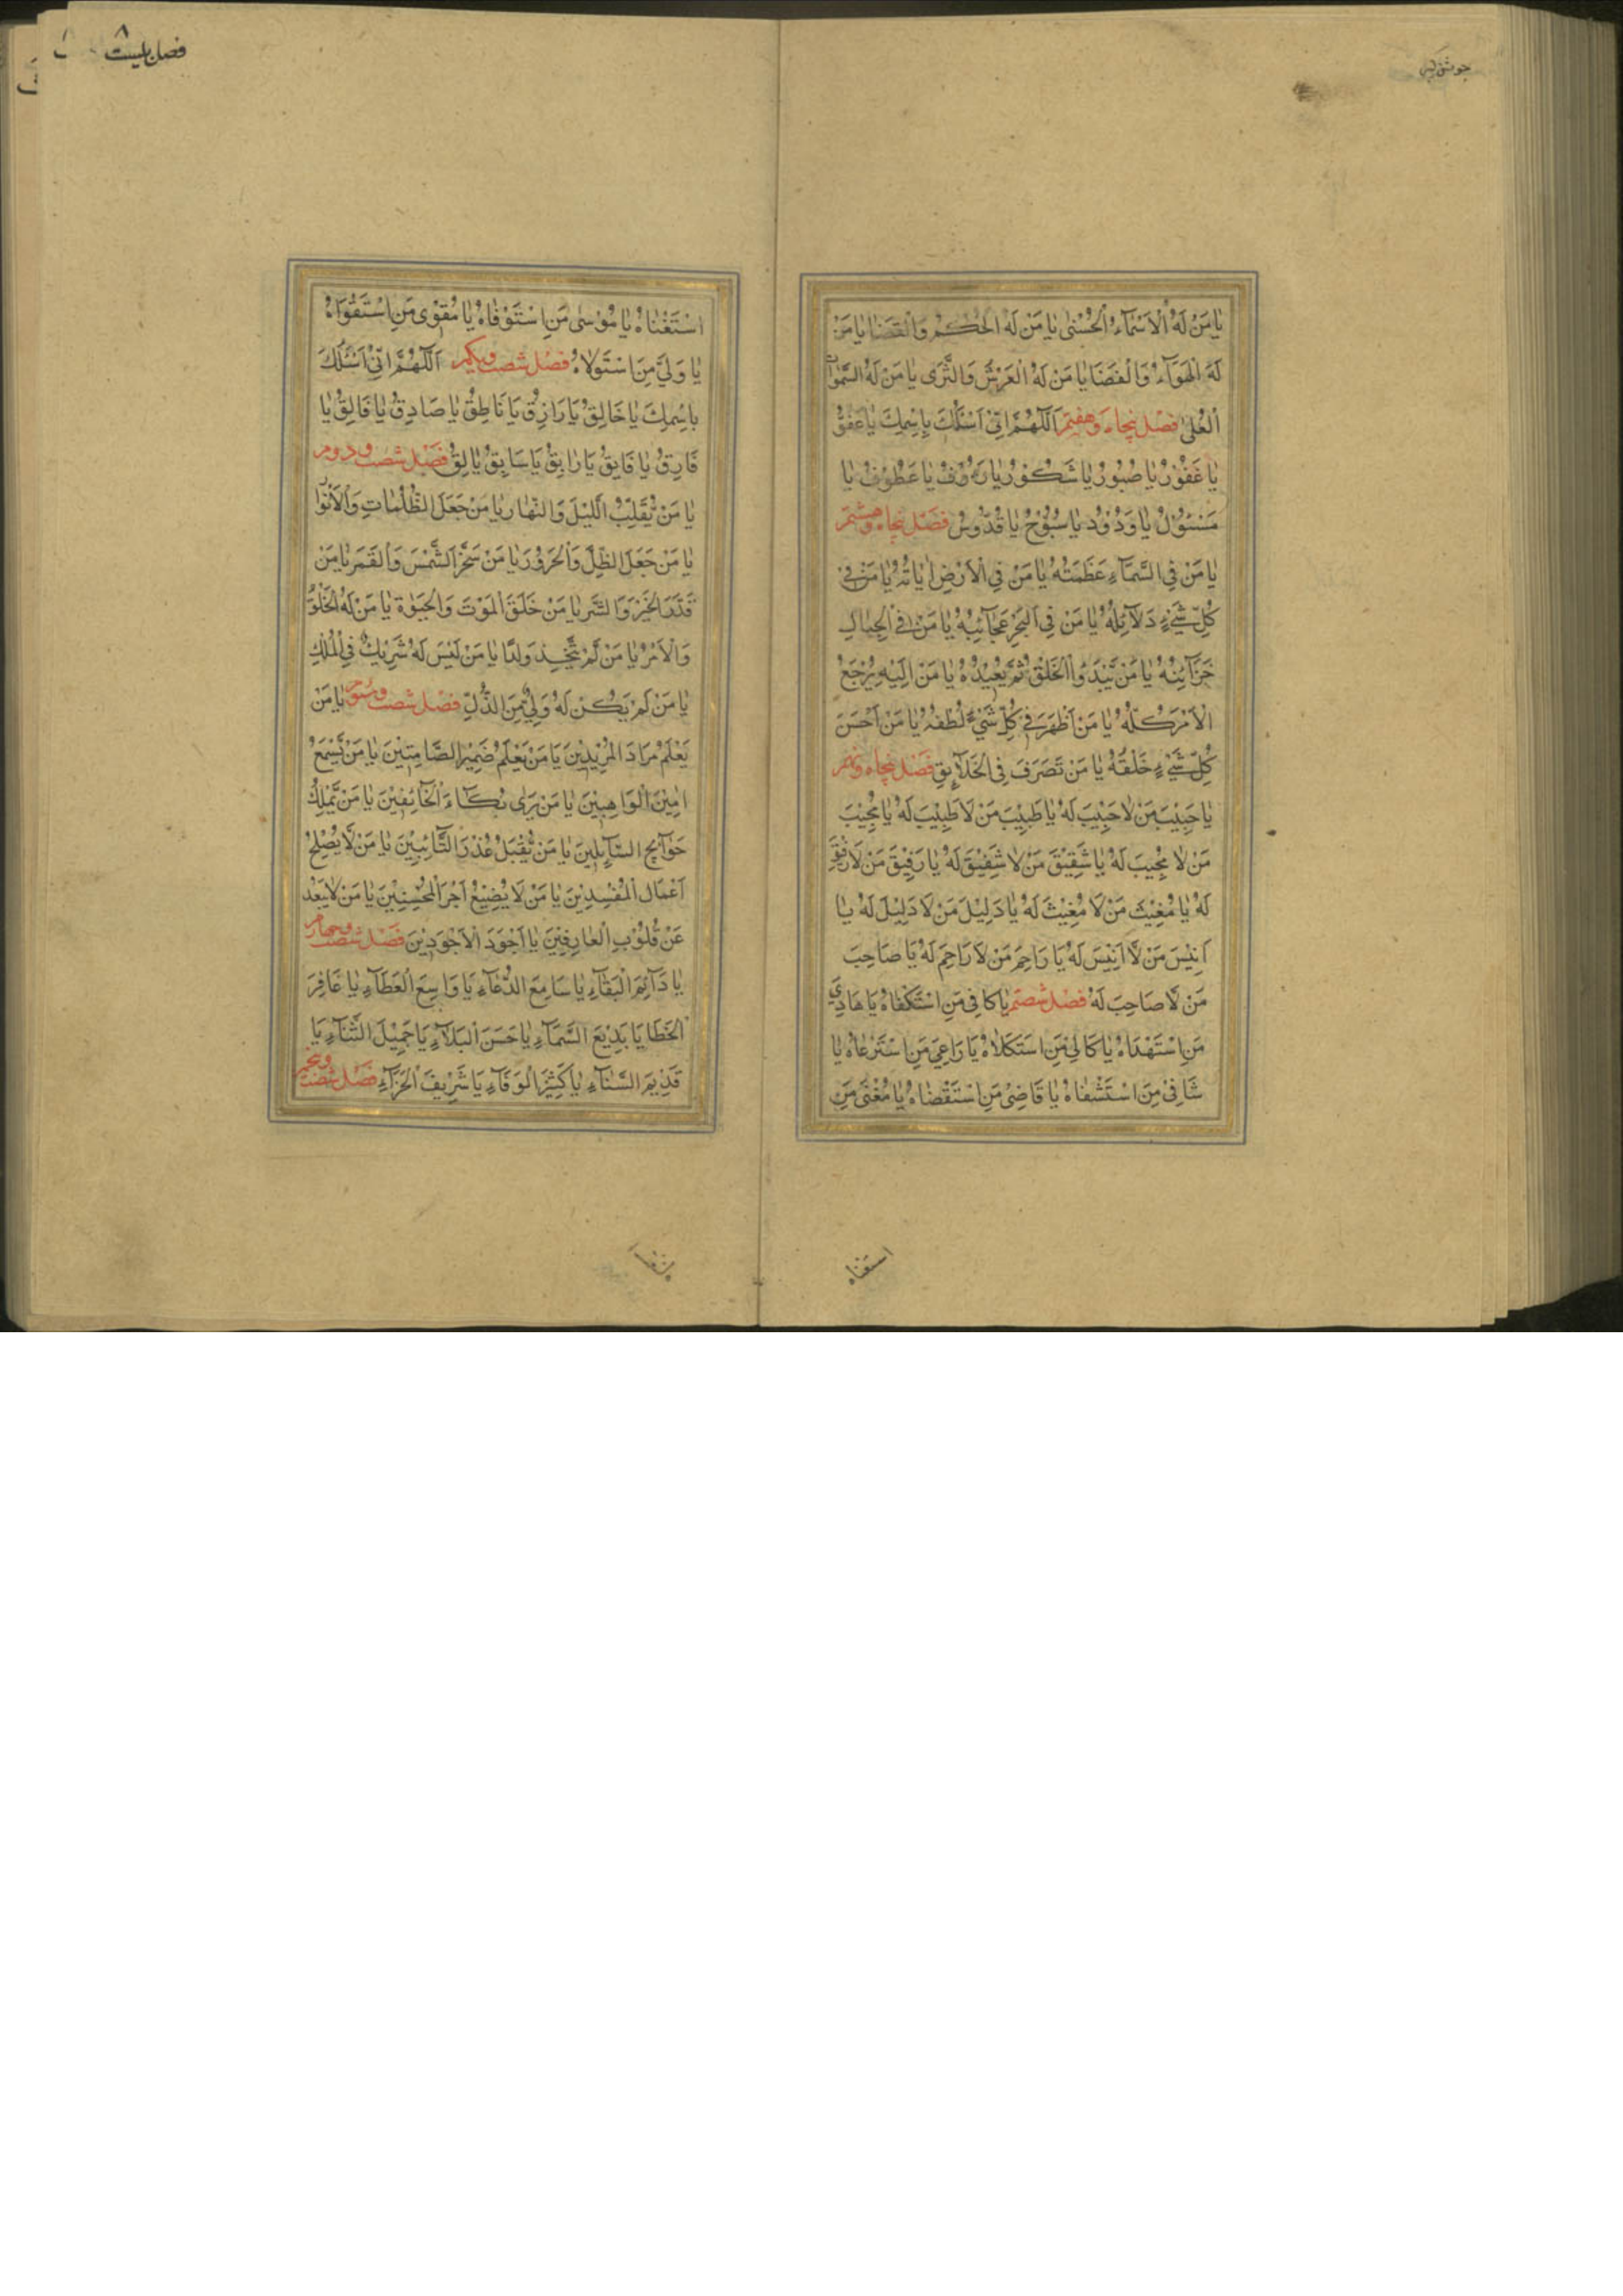 جوشن کبیر
يَا مَنْ لَهُ الْاَسْمَآءُ الْحُسْنٰى يَا مَنْ لَهُ الْحُكْمُ وَالْقَضَا يَا مَنْ
لَهُ الْهَوَآءُ وَالْفَضَا يَا مَنْ لَهُ الْعَرْشُ وَالثَّرٰى يَا مَنْ لَهُ السَّمٰوَاتُ
الْعُلٰى فصل پنجاه وهفتم اَللّٰهُمَّ اِنِّىْ اَسْئَلُكَ بِاِسْمِكَ يَا عَفُوُّ
يَا غَفُوْرُ يَا صَبُوْرُ يَا شَكُوْرُ يَا رَءُوْفُ يَا عَطُوْفُ يَا
مَسْئُوْلُ يَا وَدُوْدُ يَا سُبُّوْحُ يَا قُدُّوْسُ فصل پنجاه وهشتم
يَا مَنْ فِى السَّمَآءِ عَظَمَتُهُ يَا مَنْ فِى الْاَرْضِ اٰيَاتُهُ يَا مَنْ فِىْ
كُلِّ شَىْءٍ دَلَآئِلُهُ يَا مَنْ فِى الْبَحْرِ عَجَآئِبُهُ يَا مَنْ فِى الْجِبَالِ
خَزَآئِنُهُ يَا مَنْ يَّبْدَؤُا الْخَلْقَ ثُمَّ يُعِيْدُهُ يَا مَنْ اِلَيْهِ يُرْجَعُ
الْاَمْرُ كُلُّهُ يَا مَنْ اَظْهَرَ فِىْ كُلِّ شَىْءٍ لُطْفَهُ يَا مَنْ اَحْسَنَ
كُلَّ شَىْءٍ خَلْقَهُ يَا مَنْ تَصَرَفَ فِى الْخَلَآئِقِ فصل پنجاه ونهم
يَا حَبِيْبَ مَنْ لَا حَبِيْبَ لَهُ يَا طَبِيْبَ مَنْ لَا طَبِيْبَ لَهُ يَا مُجِيْبَ
مَنْ لَا مُجِيْبَ لَهُ يَا شَفِيْقَ مَنْ لَا شَفِيْقَ لَهُ يَا رَفِيْقَ مَنْ لَا رَفِيْقَ
لَهُ يَا مُغِيْثَ مَنْ لَا مُغِيْثَ لَهُ يَا دَلِيْلَ مَنْ لَا دَلِيْلَ لَهُ يَا
اَنِيْسَ مَنْ لَّا اَنِيْسَ لَهُ يَا رَاحِمَ مَنْ لَا رَاحِمَ لَهُ يَا صَاحِبَ
مَنْ لَّا صَاحِبَ لَهُ فصل شصتم يَا كَافِىَ مَنِ اسْتَكْفَاهُ يَا هَادِىَ
مَنِ اسْتَهْدَاهُ يَا كَالِىَ مَنِ اسْتَكَلَاهُ يَا رَاعِىَ مَنِ اسْتَرْعَاهُ يَا
شَافِىَ مَنِ اسْتَشْفَاهُ يَا قَاضِىَ مَنِ اسْتَقْضَاهُ يَا مُغْنِىَ مَنِ
استغناه
فصل بیست ۸
اسْتَغْنَاهُ يَا مُوْسٰى مَنِ اسْتَوْفَاهُ يَا مُقَوِّىَ مَنِ اسْتَقْوَاهُ
يَا وَلِىَّ مَنِ اسْتَوْلَاهُ فصل شصت ویکم اَللّٰهُمَّ اِنِّىْ اَسْئَلُكَ
بِاسْمِكَ يَا خَالِقُ يَا رَازِقُ يَا نَاطِقُ يَا صَادِقُ يَا فَالِقُ يَا
فَارِقُ يَا فَايِقُ يَا رَابِقُ يَا سَابِقُ يَا لِقُ فصل شصت ودوم
يَا مَنْ يُّقَلِّبُ الَّيْلَ وَالنَّهَارَ يَا مَنْ جَعَلَ الظُّلُمَاتِ وَالْاَنْوَارَ
يَا مَنْ جَعَلَ الظِّلَّ وَالْحَرُوْرَ يَا مَنْ سَخَّرَ الشَّمْسَ وَالْقَمَرَ يَا مَنْ
قَدَّرَ الْخَيْرَ وَالشَّرَّ يَا مَنْ خَلَقَ الْمَوْتَ وَالْحَيٰوةَ يَا مَنْ لَهُ الْخَلْقُ
وَالْاَمْرُ يَا مَنْ لَّمْ يَتَّخِذْ وَلَدًا يَا مَنْ لَيْسَ لَهُ شَرِيْكٌ فِى الْمُلْكِ
يَا مَنْ لَمْ يَكُنْ لَهُ وَلِىٌّ مِنَ الذُّلِّ فصل شصت وسوم يَا مَنْ
يَعْلَمُ مُرَادَ الْمُرِيْدِيْنَ يَا مَنْ يَعْلَمُ ضَمِيْرَ الصَّامِتِيْنَ يَا مَنْ يَّسْمَعُ
اَنِيْنَ الْوَاهِبِيْنَ يَا مَنْ يَرٰى بُكَآءَ الْخَآئِفِيْنَ يَا مَنْ يَّمْلِكُ
حَوَآئِجَ السَّآئِلِيْنَ يَا مَنْ يُّقْبَلُ عُذْرَ التَّآئِبِيْنَ يَا مَنْ لَّا يُصْلِحُ
اَعْمَالَ الْمُفْسِدِيْنَ يَا مَنْ لَا يُضِيْعُ اَجْرَ الْمُحْسِنِيْنَ يَا مَنْ لَا يَبْعُدُ
عَنْ قُلُوْبِ الْعَارِفِيْنَ يَا اَجْوَدَ الْاَجْوَدِيْنَ فصل شصت وچهارم
يَا دَآئِمَ الْبَقَآءِ يَا سَامِعَ الدُّعَآءِ يَا وَاسِعَ الْعَطَآءِ يَا غَافِرَ
الْخَطَا يَا بَدِيْعَ السَّمَآءِ يَا حَسَنَ الْبَلَآءِ يَا جَمِيْلَ الثَّنَآءِ يَا
قَدِيْمَ السَّنَآءِ يَا كَثِيْرَ الْوَفَآءِ يَا شَرِيْفَ الْجَزَآءِ فصل شصت وپنجم